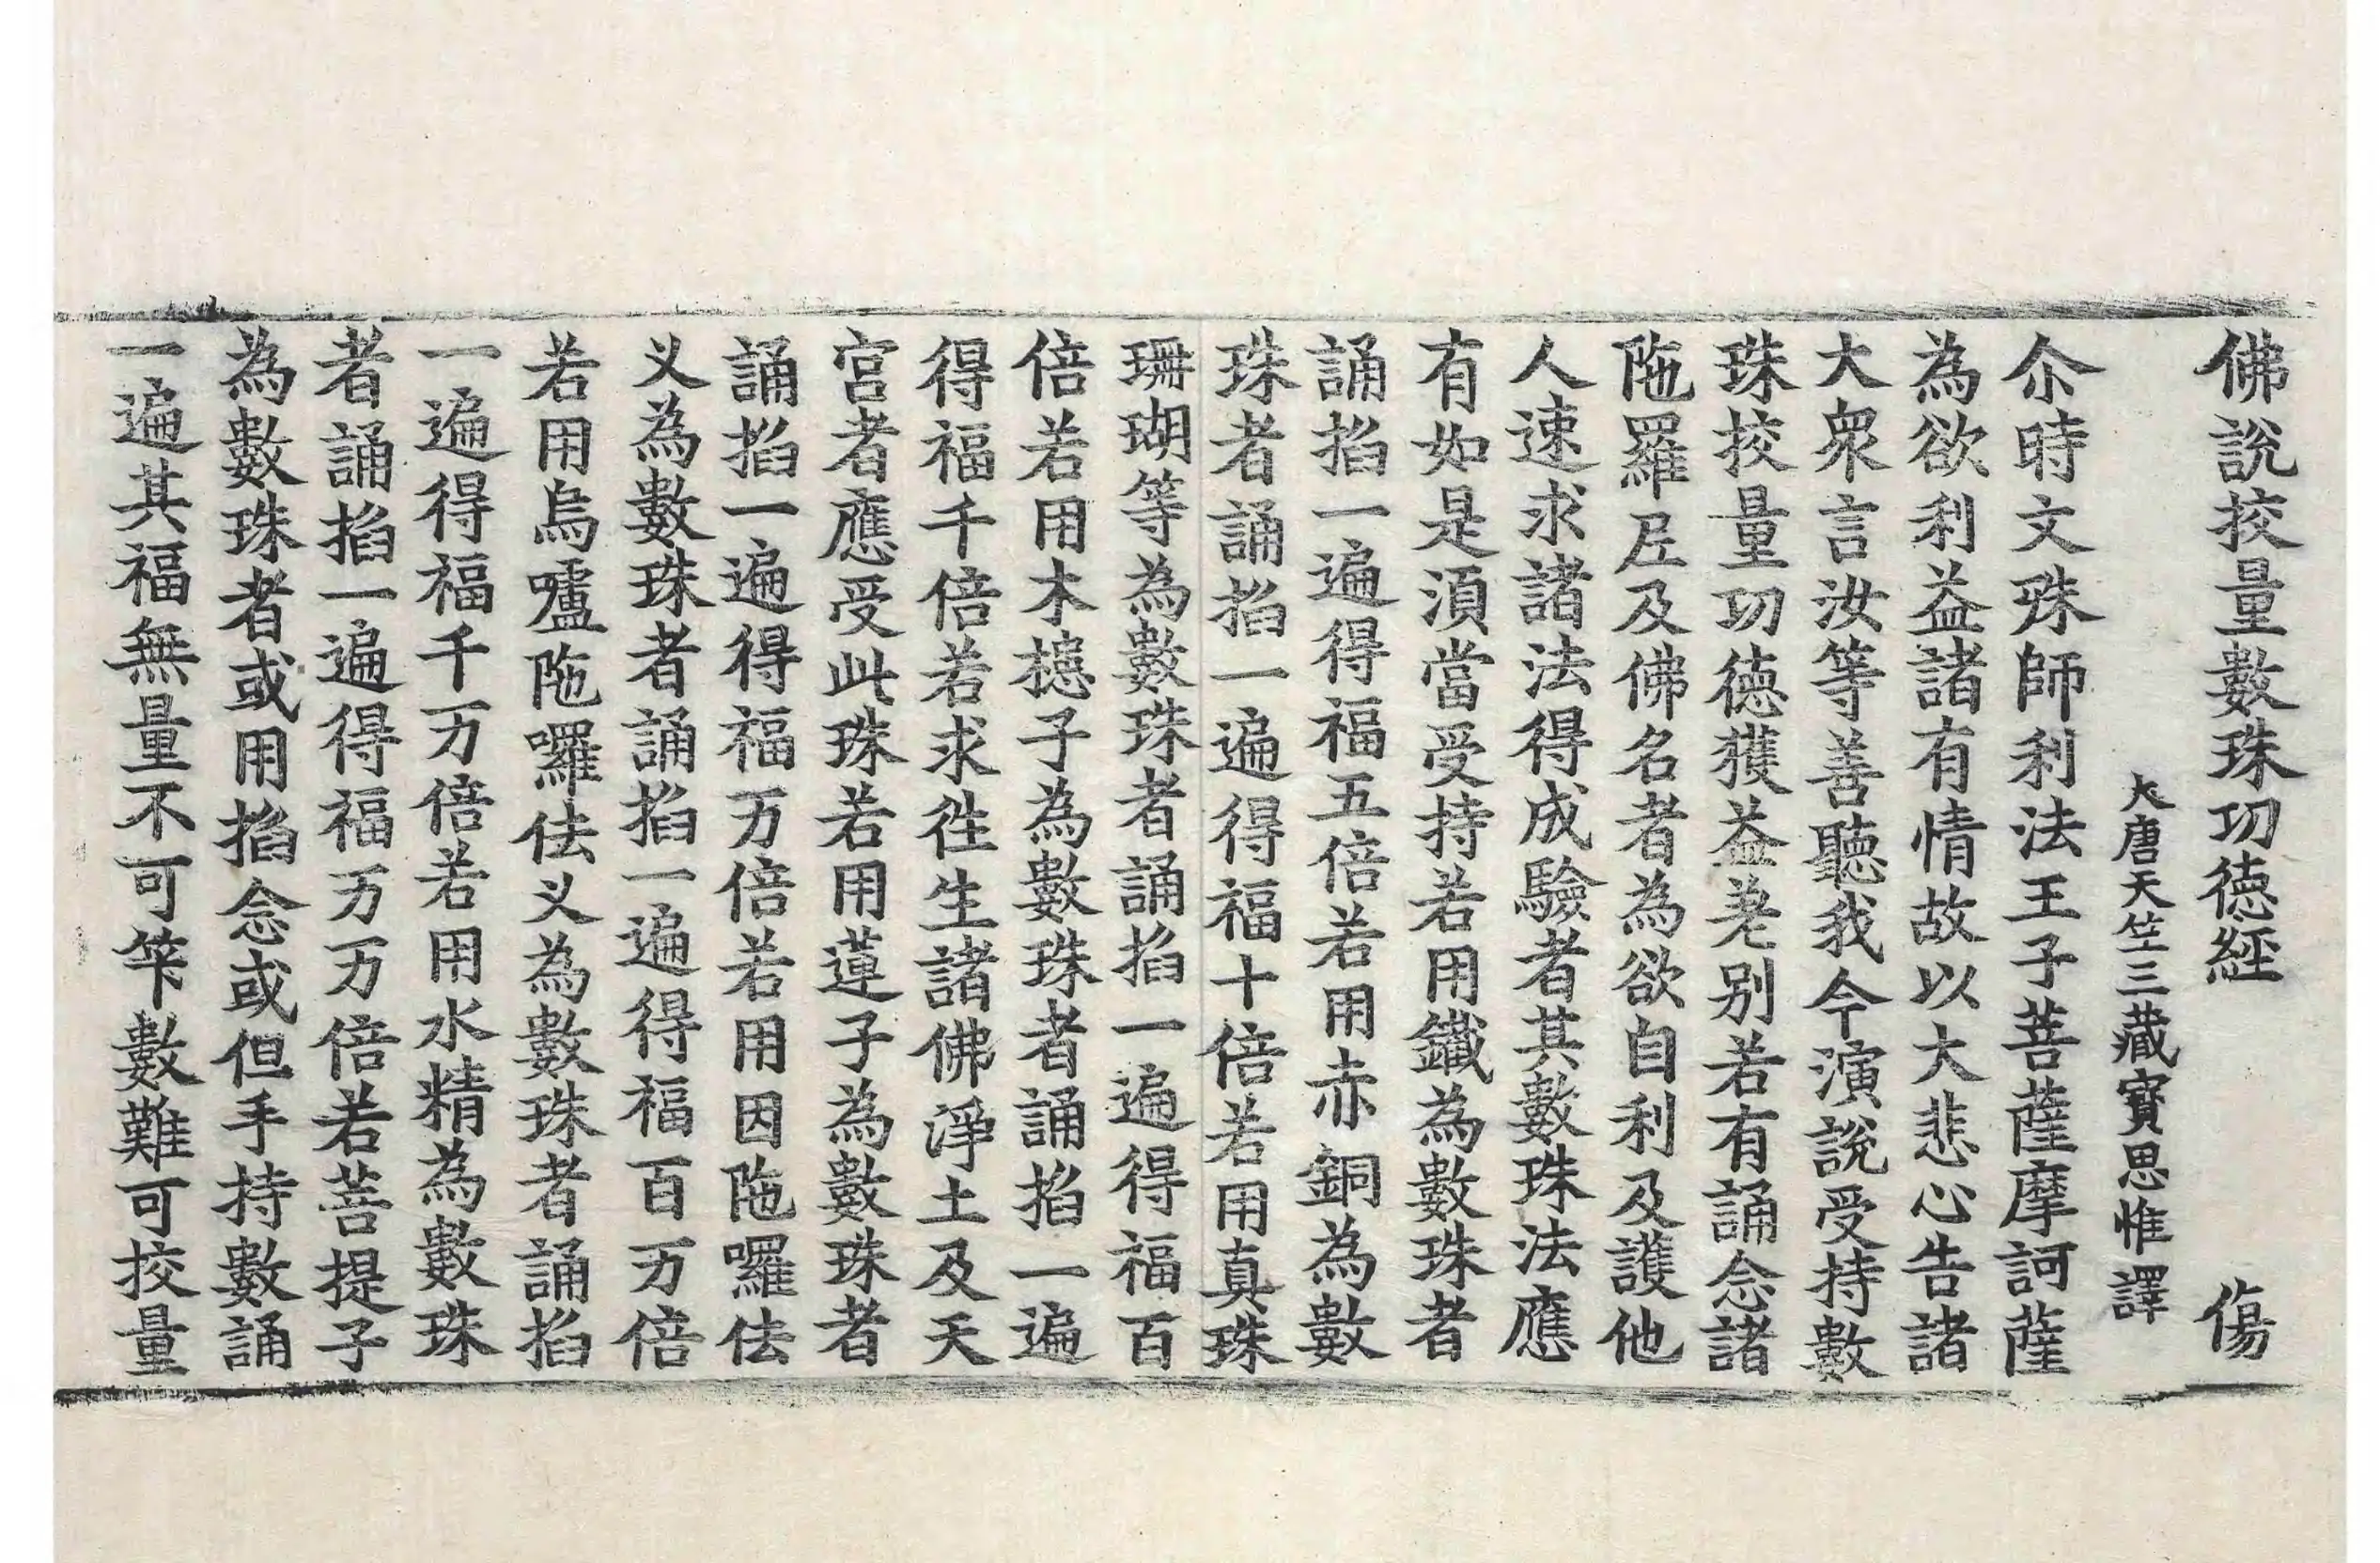 佛說挍量數珠功德經　傷
大唐天竺三藏寶思惟譯
尒時文殊師利法王子菩薩摩訶薩
為欲利益諸有情故以大悲心告諸
大衆言汝等善聽我今演說受持數
珠挍量功德獲益差別若有誦念諸
陁羅尼及佛名者為欲自利及護他
人速求諸法得成驗者其數珠法應
有如是湏當受持若用鐵為數珠者
誦掐一遍得福五倍若用赤銅為數
珠者誦掐一遍得福十倍若用真珠
珊瑚等為數珠者誦掐一遍得福百
倍若用木槵子為數珠者誦掐一遍
得福千倍若求徃生諸佛淨土及天
宮者應受此珠若用蓮子為數珠者
誦掐一遍得福万倍若用因陁囉佉
义為數珠者誦掐一遍得福百万倍
若用烏嚧陁囉佉义為數珠者誦掐
一遍得福千万倍若用水精為數珠
者誦掐一遍得福万万倍若菩提子
為數珠者或用掐念或但手持數誦
一遍其福無量不可筭數難可挍量